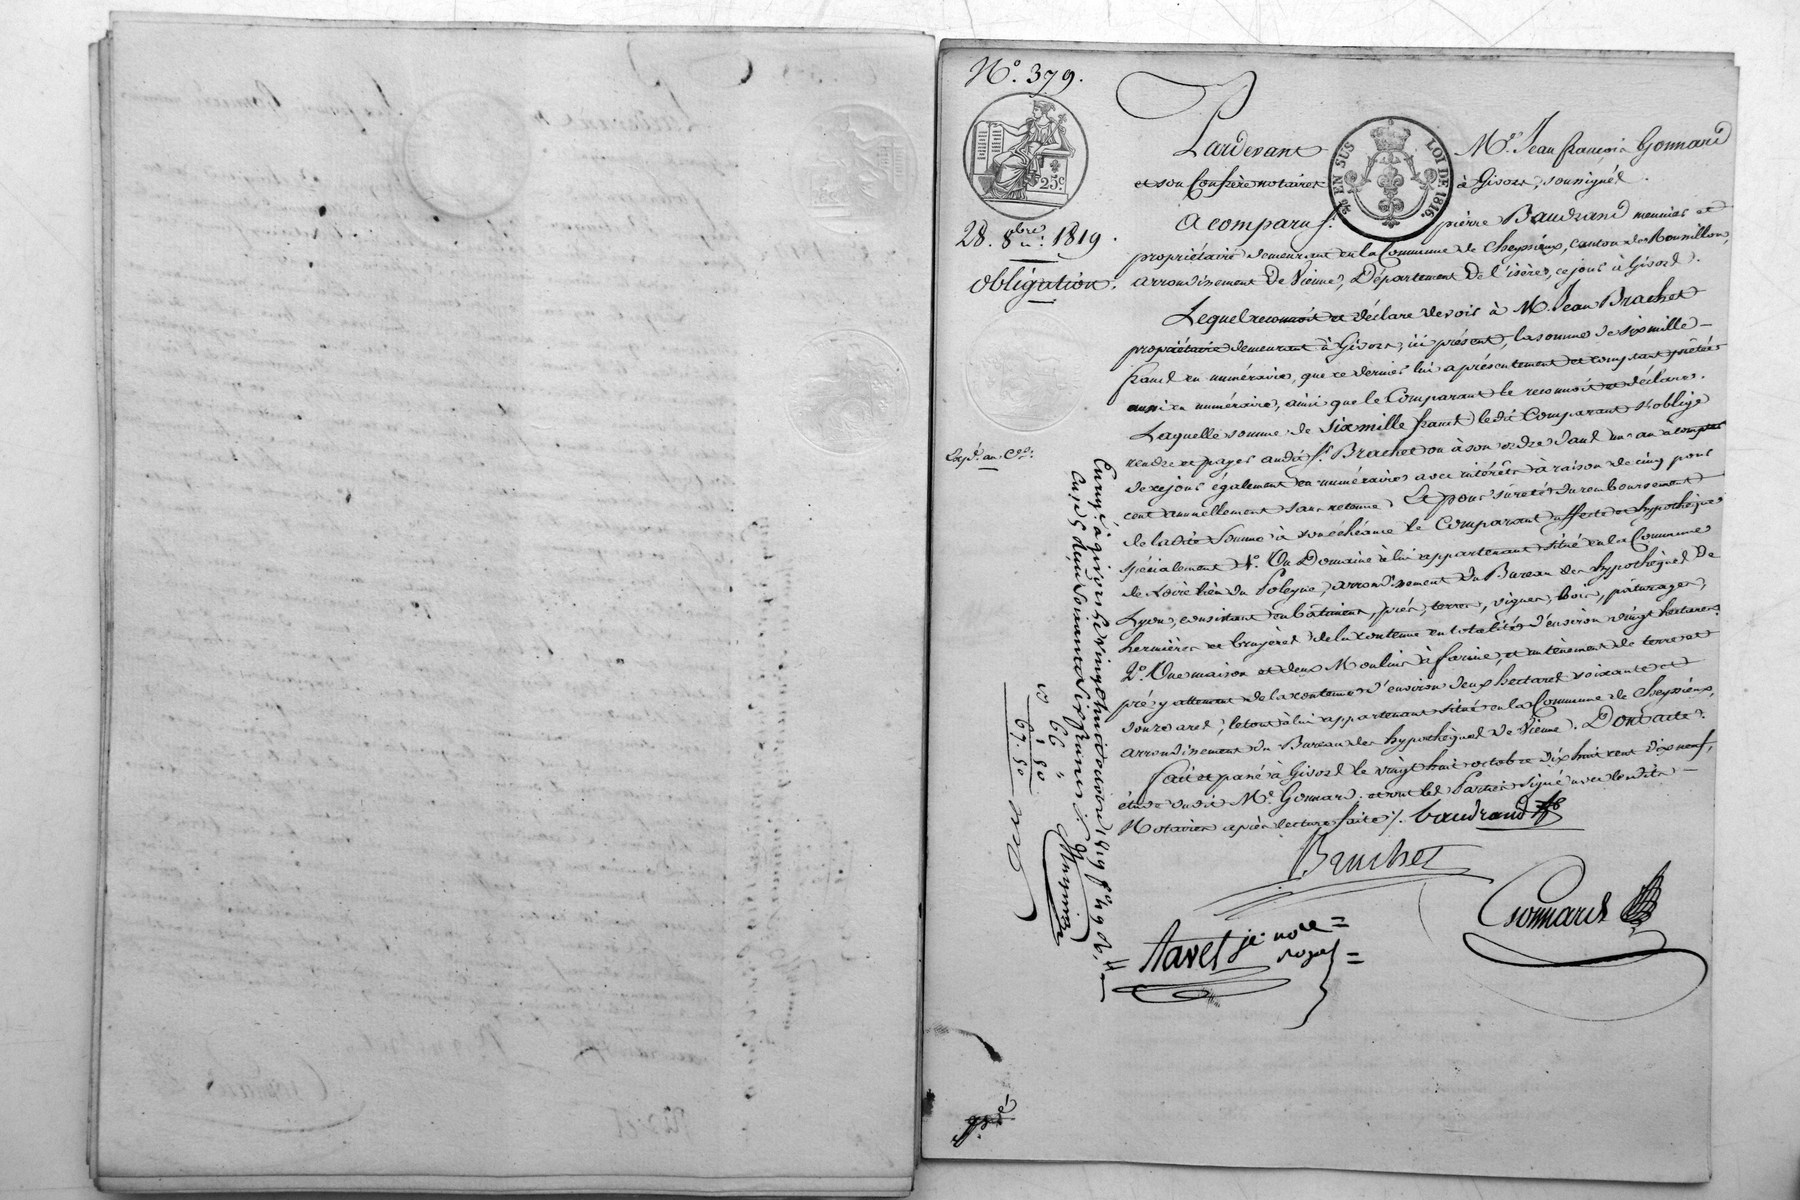 N.° 379.
25c
28. 8bre 1819.
Obligation.
Exp.é au C.er
EN SUS
LOI DE 1816.
Pardevant M.e Jean françois Gonnard
et son Confrère notaires à Givors, soussignés.
A comparu s.r pierre Baudrand meunier et
propriétaire demeurant en la Commune de Cheyssieux, canton de Roussillon,
arrondissement de Vienne, Département de l'isère, ce jour à Givors.
Lequel reconnoit et déclare devoir à M. Jean Brachet
propriétaire demeurant à Givors, ici présent, la somme de six mille
francs en numéraire, que ce dernier lui a présentement et comptant prêtée
aussi en numéraire, ainsi que le Comparant le reconnoit et déclare.
Laquelle somme de six mille francs ledit Comparant s'oblige
rendre et payer audit s.r Brachet ou à son ordre dans un an à compter
de ce jour également en numéraire avec intérêts à raison de cinq pour
cent annuellement sans retenue. Et pour sûreté du remboursement
de ladite Somme à son échéance le Comparant affecte et hypothèque
spécialement 1.° Un Domaine à lui appartenant situé en la Commune
de Loire lieu du Poleyne, arrondissement du Bureau des hypothèques de
Lyon, consistant en bâtiment, prés, terres, vignes, bois, pâturages,
hermières et bruyères de la contenue en totalité d'environ vingt hectares.
2.° Une maison et deux Moulins à farine, et un tènement de terre et
pré y attenant de la contenue d'environ deux hectares soixante et
douze ares, le tout à lui appartenant situé en la Commune de Cheyssieux,
arrondissement du Bureau des hypothèques de Vienne. Dont acte.
fait et passé à Givors le vingt huit octobre dix huit cent dix neuf,
étude dudit M.e Gonnard. et ont les Parties signé avec lesdits
Notaires après lecture faite /. baudrand
Brachet
Gonnard
Favel je. no.re
royal
66 "
1 50
67. 50